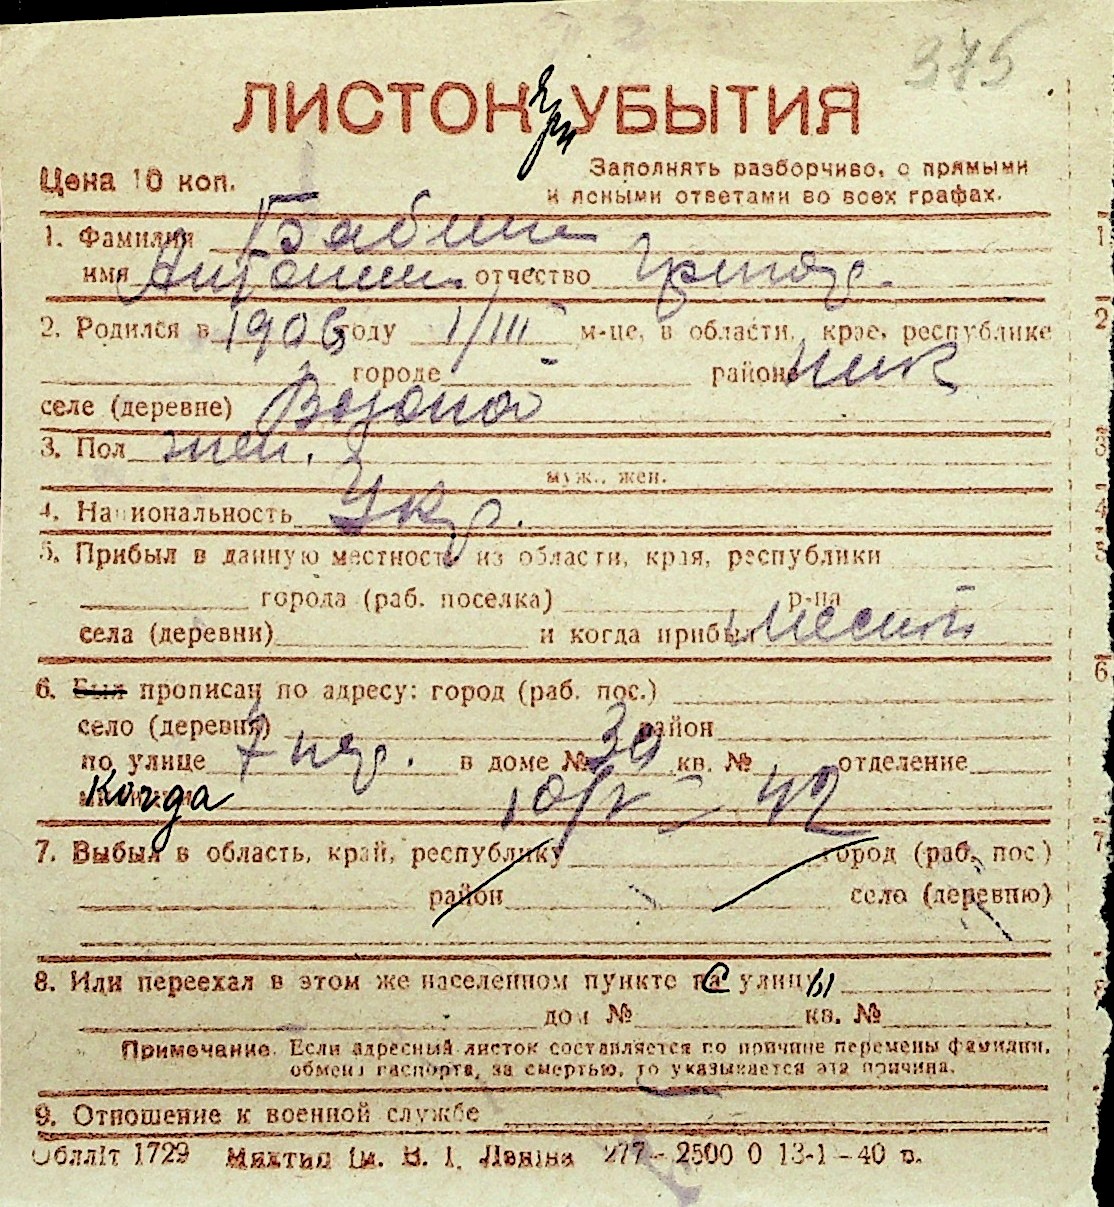 375
ЛИСТОК при УБЫТИЯ
Цена 10 коп.
Заполнять разборчиво, с прямыми
и ясными ответами во всех графах.
1. Фамилия Бабич
имя Антонин. отчество Григор.
2. Родился в 1906 году 1/III м-це, в области, крае, республике
городе районе Ник
селе (деревне)
3. Пол жен.
муж., жен.
4. Национальность Укр.
5. Прибыл в данную местность из области, края, республики
города (раб. поселка) р-на
села (деревни) и когда прибыл местн
6. Был прописан по адресу: город (раб. пос.)
село (деревня) район
по улице 7 в доме № 30 кв. № отделение
Когда 10/V 42
7. Выбыл в область, край, республику город (раб. пос.)
район село (деревню)
8. Или переехал в этом же населенном пункте с улицы
дом № кв. №
Примечание. Если адресный листок составляется по причине перемены фамилии,
обмена паспорта, за смертью, то указывается эта причина.
9. Отношение к военной службе
Обллiт 1729 Миктип iм. В. I. Ленiна 277 - 2500 0 13-1 - 40 р.